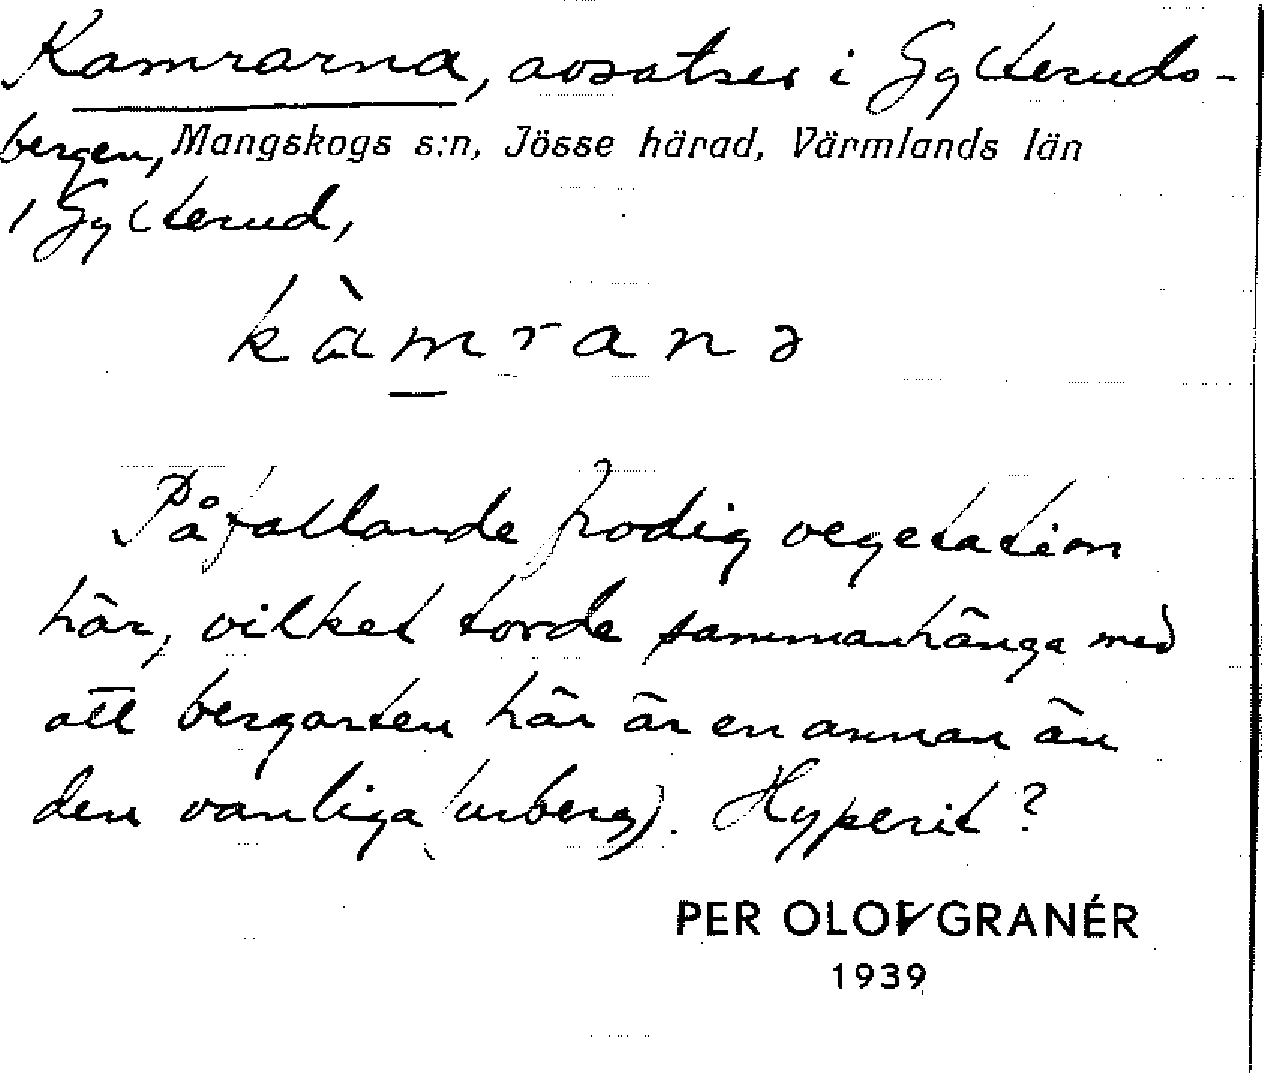 Kamrarna, avsatser i Gylteruds-
bergen, Mangskogs s:n, Jösse härad, Värmlands län
i Gylterud,
kàmranə
Påfallande frodig vegetation
här, vilket torde sammanhänga med
att bergarten här är en annan än
den vanliga (urberg). Hyperit?
PER OLOV GRANÉR
1939